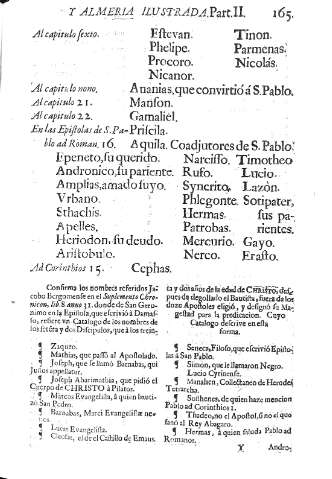 Y ALMERIA ILUSTRADA. Part. II. 165.
Al capitulo sexto. Estevan. Timon.
Phelipe. Parmenas.
Procoro. Nicolás.
Nicanor.
Al capitulo nono. Ananias, que convirtió á S. Pablo.
Al capitulo 21. Manson.
Al capitulo 22. Gamaliél.
En las Epistolas de S. Pa- Priscila.
blo ad Roman. 16. Aquila. Coadjutores de S. Pablo.
Epeneto, su querido. Narcisso. Timotheo
Andronico, su pariente. Rufo. Lucio.
Amplias, amado suyo. Syncrito. Lazón.
Vrbano. Phlegonte. Sotipater,
Sthachis. Hermas. sus pa-
Apelles, Patrobas. rientes.
Heriodon, su deudo. Mercurio. Gayo.
Aristobulo. Nereo. Erasto.
Ad Corinthios 15. Cephas.
Confirma los nombres referidos Ja-
cobo Bergomense en el Suplemento Chro-
nicon, lib. 8. anno 31. donde de San Gero-
nimo en la Epistola, que escrivió á Damas-
so, refiere vn Catalogo de los nombres de
los setenta y dos Discipulos, que á los trein-
¶ Zaqueo.
¶ Mathias, que passó al Apostolado.
¶ Joseph, que se llamó Barnabas, qui
Justus appellatur.
¶ Joseph Abarimathia, que pidió el
Cuerpo de CHRISTO á Pilatos.
¶ Marcos Evangelista, á quien bauti-
zó San Pedro.
¶ Barnabas, Marci Evangelistæ ne-
¶ Lucas Evangelista.
¶ Cleofas, el de el Castillo de Emaus.
ta y dos años de la edad de CHRISTO, des-
pues de degollado el Bautista, fuera de los
doze Apostoles eligió, y designó Su Ma-
gestad para la predicacion. Cuyo
Catalogo descrive en esta
forma.
¶ Seneca, Filosofo, que escrivió Episto-
las á San Pablo.
¶ Simon, que se llamaron Negro.
Lucio Cyrinense.
¶ Manahen, Collectaneo de Herodes
Tetrarcha.
¶ Sosthenes, de quien haze mencion
Pablo ad Corinthios 1.
¶ Thadeo, no el Apostol, sino el que
sanó al Rey Abagaro.
¶ Hermas, á quien saluda Pablo ad
Romanos.
Y Andro-